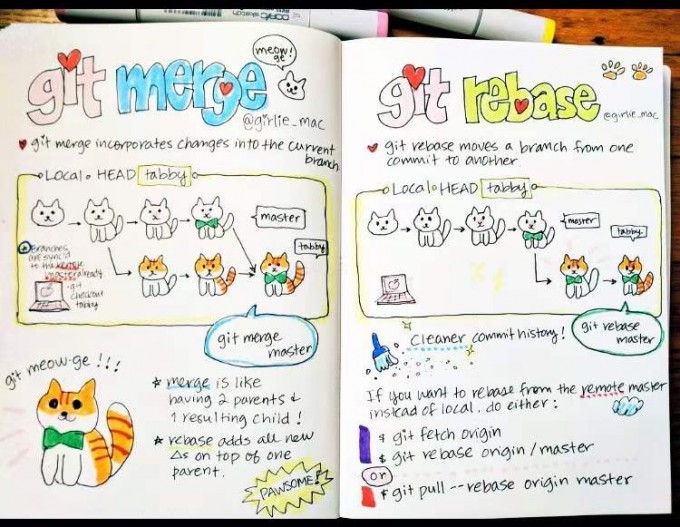 git merge
meow!
ge!
@girlie_mac
git merge incorporates changes into the current
branch
Local HEAD tabby
master
tabby
Branches
are sync'd
to the remote
master already
git
checkout
tabby
git merge
master
git meow-ge !!!
merge is like
having 2 parents &
1 resulting child!
rebase adds all new
Δs on top of one
parent.
PAWSOME!
git rebase
@girlie_mac
git rebase moves a branch from one
commit to another
Local HEAD tabby
master
tabby
git rebase
master
cleaner commit history!
If you want to rebase from the remote master
instead of local. do either:
$ git fetch origin
$ git rebase origin/master
or
$ git pull --rebase origin master